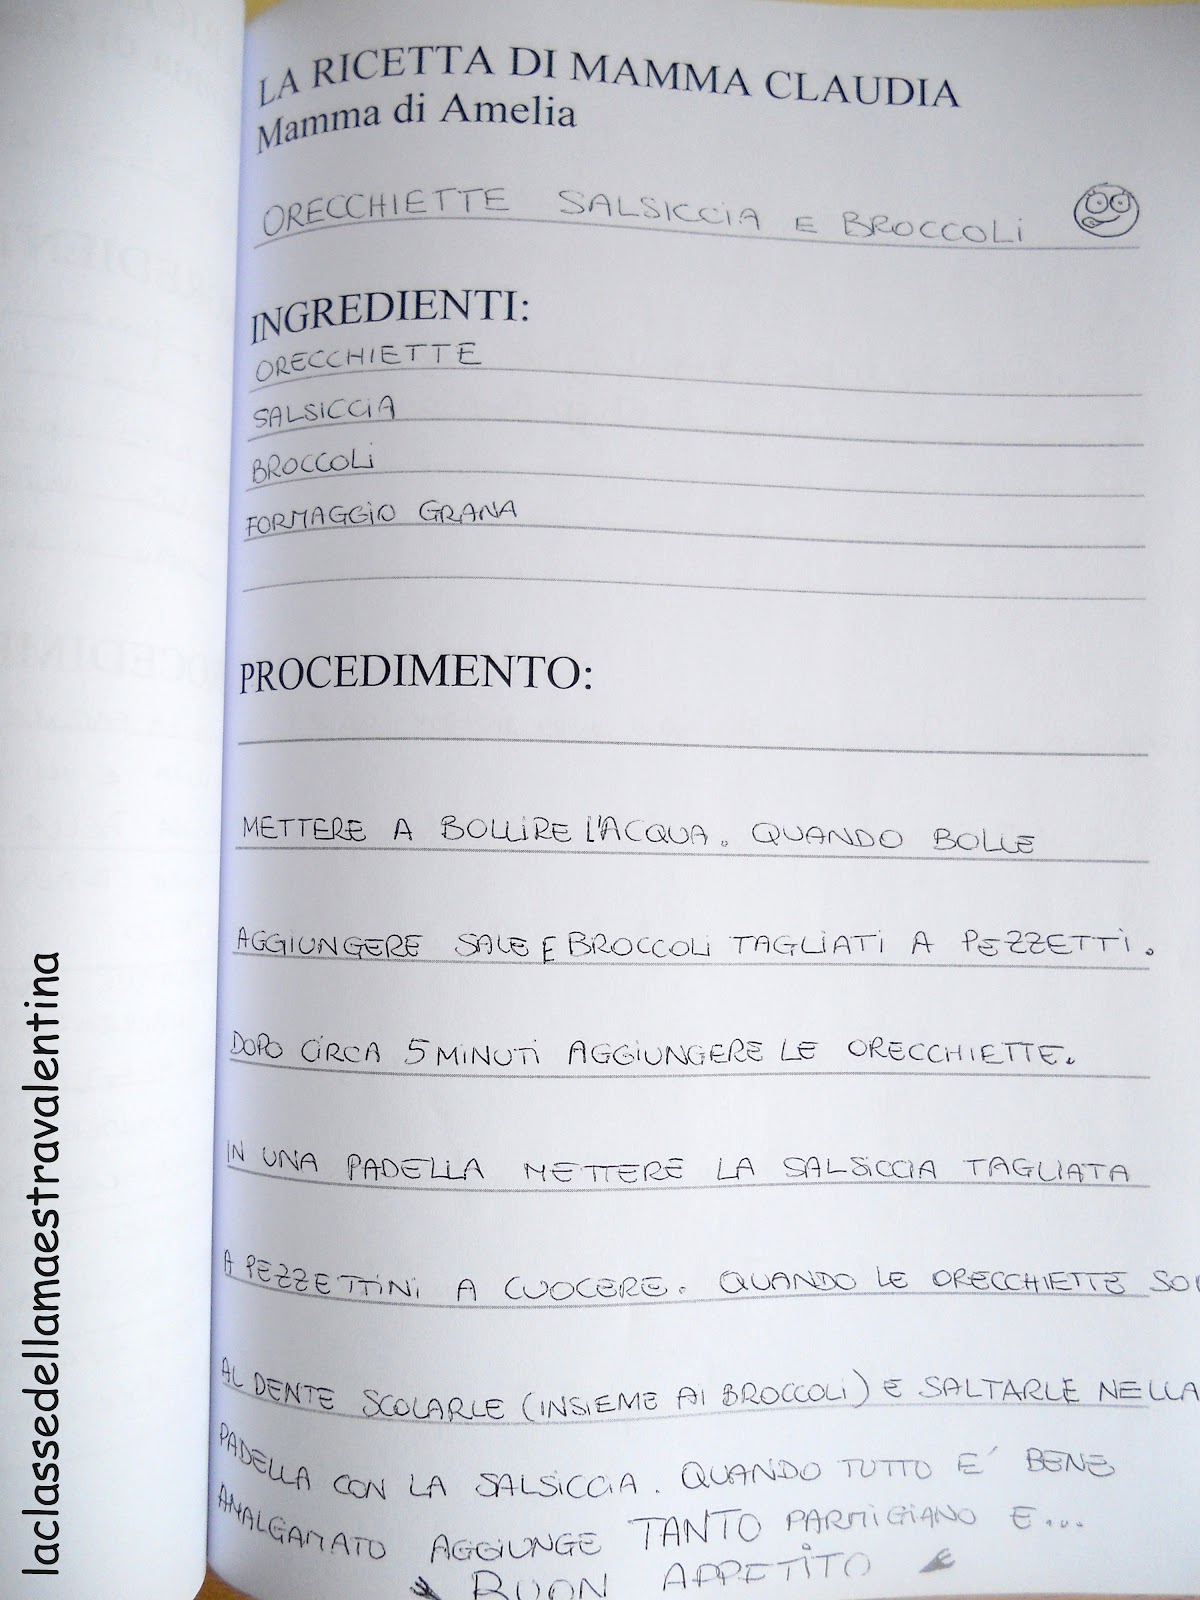 LA RICETTA DI MAMMA CLAUDIA
Mamma di Amelia
ORECCHIETTE SALSICCIA E BROCCOLI
INGREDIENTI:
ORECCHIETTE
SALSICCIA
BROCCOLI
FORMAGGIO GRANA
PROCEDIMENTO:
METTERE A BOLLIRE L'ACQUA. QUANDO BOLLE
AGGIUNGERE SALE E BROCCOLI TAGLIATI A PEZZETTI.
DOPO CIRCA 5 MINUTI AGGIUNGERE LE ORECCHIETTE.
IN UNA PADELLA METTERE LA SALSICCIA TAGLIATA
A PEZZETTINI A CUOCERE. QUANDO LE ORECCHIETTE
AL DENTE SCOLARLE (INSIEME AI BROCCOLI) E SALTARLE NELLA
PADELLA CON LA SALSICCIA. QUANDO TUTTO E' BENE
AMALGAMATO AGGIUNGE TANTO PARMIGIANO E...
BUON APPETITO
laclassedellamaestravalentina